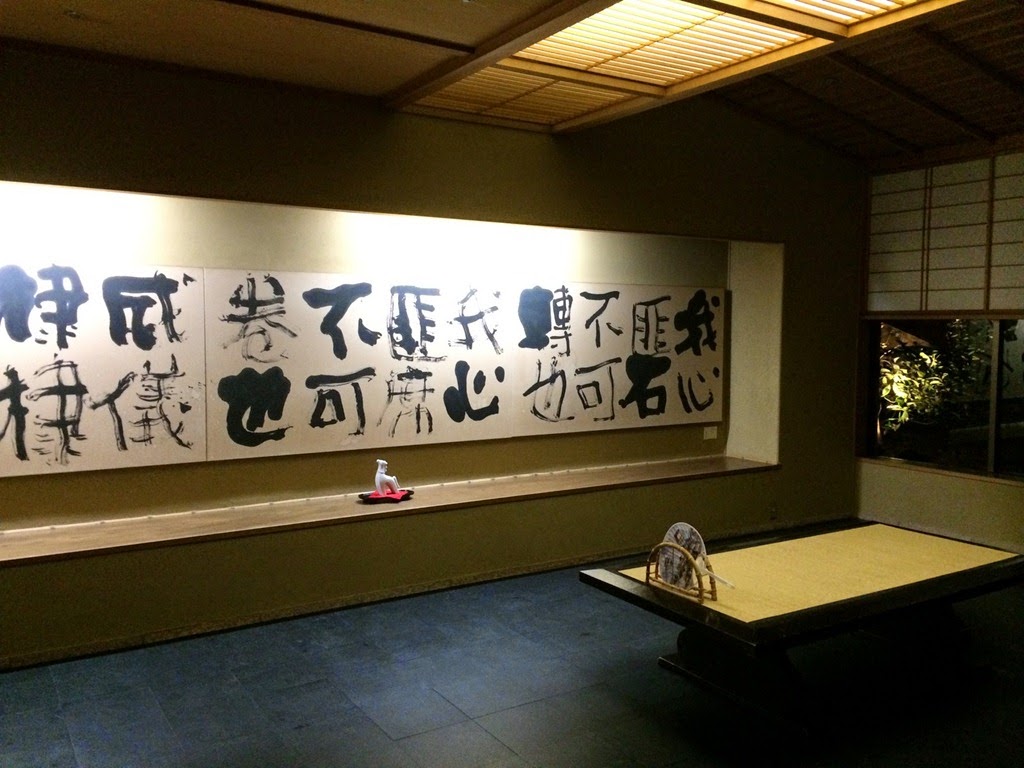 我心
匪石
不可
轉也
我心
匪席
不可
卷也
威儀
棣棣